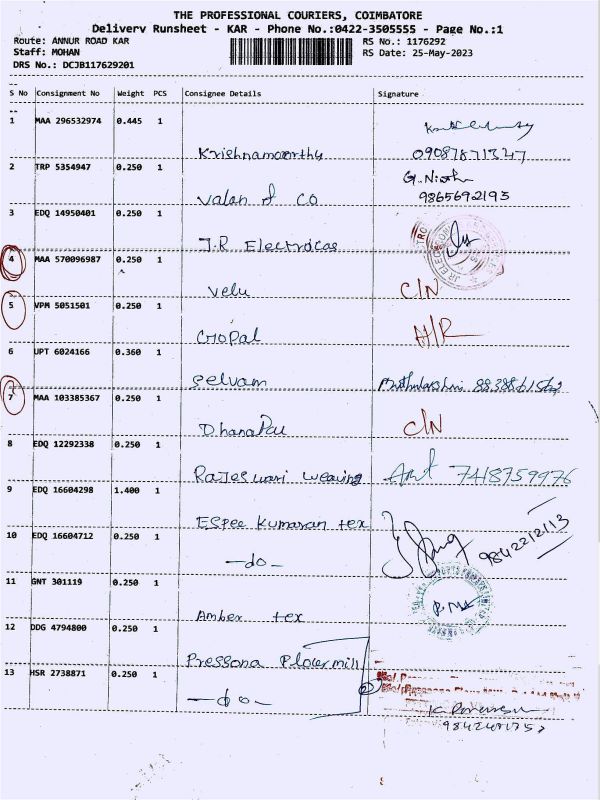 THE PROFESSIONAL COURIERS, COIMBATORE
Delivery Runsheet - KAR - Phone No.:0422-3505555 - Page No.:1
Route: ANNUR ROAD KAR RS No.: 1176292
Staff: MOHAN RS Date: 25-May-2023
DRS No.: DCJB117629201
S No Consignment No Weight PCS Consignee Details Signature
1 MAA 296532974 0.445 1
Krishnamoorthy 09087871347
2 TRP 5354947 0.250 1
Valan & CO 9865692193
3 EDQ 14950401 0.250 1
J.R Electricas
4 MAA 570096987 0.250 1
Velu C/N
5 VPM 5051501 0.250 1
Gopal A/R
6 UPT 6024166 0.360 1
Selvam
7 MAA 103385367 0.250 1
Dhanapal C/N
8 EDQ 12292338 0.250 1
Rajeswari Weaving 7418759976
9 EDQ 16604298 1.400 1
Espee Kumaran tex
9842212113
10 EDQ 16604712 0.250 1
-do-
11 GNT 301119 0.250 1
Amber tex
12 DDG 4794800 0.250 1
Pressona Flower mill
13 HSR 2738871 0.250 1
-do-